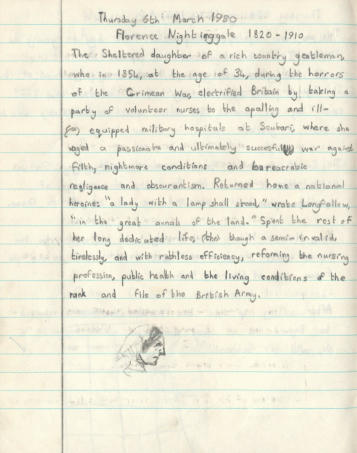 Thursday 6th March 1980
Florence Nightinggale 1820-1910
The Sheltered daughter of a rich country gentleman,
who in 1854, at the age of 34, during the horrors
of the Crimean War, electrified Britain by taking a
party of volunteer nurses to the apalling and ill-
equipped military hospitals at Scutari, where she
waged a passionate and ultimately succesful war against
filthy, nightmare conditions and
negligence and obscurantism. Returned home a national
heroine: "a lady with a lamp shall stand," wrote Longfellow,
"in the great annals of the land." Spent the rest of
her long dedicated life, though a semi-invalid,
tirelessly, and with ruthless efficiency, reforming the nursing
profession, public health and the living conditions of the
rank and file of the British Army.